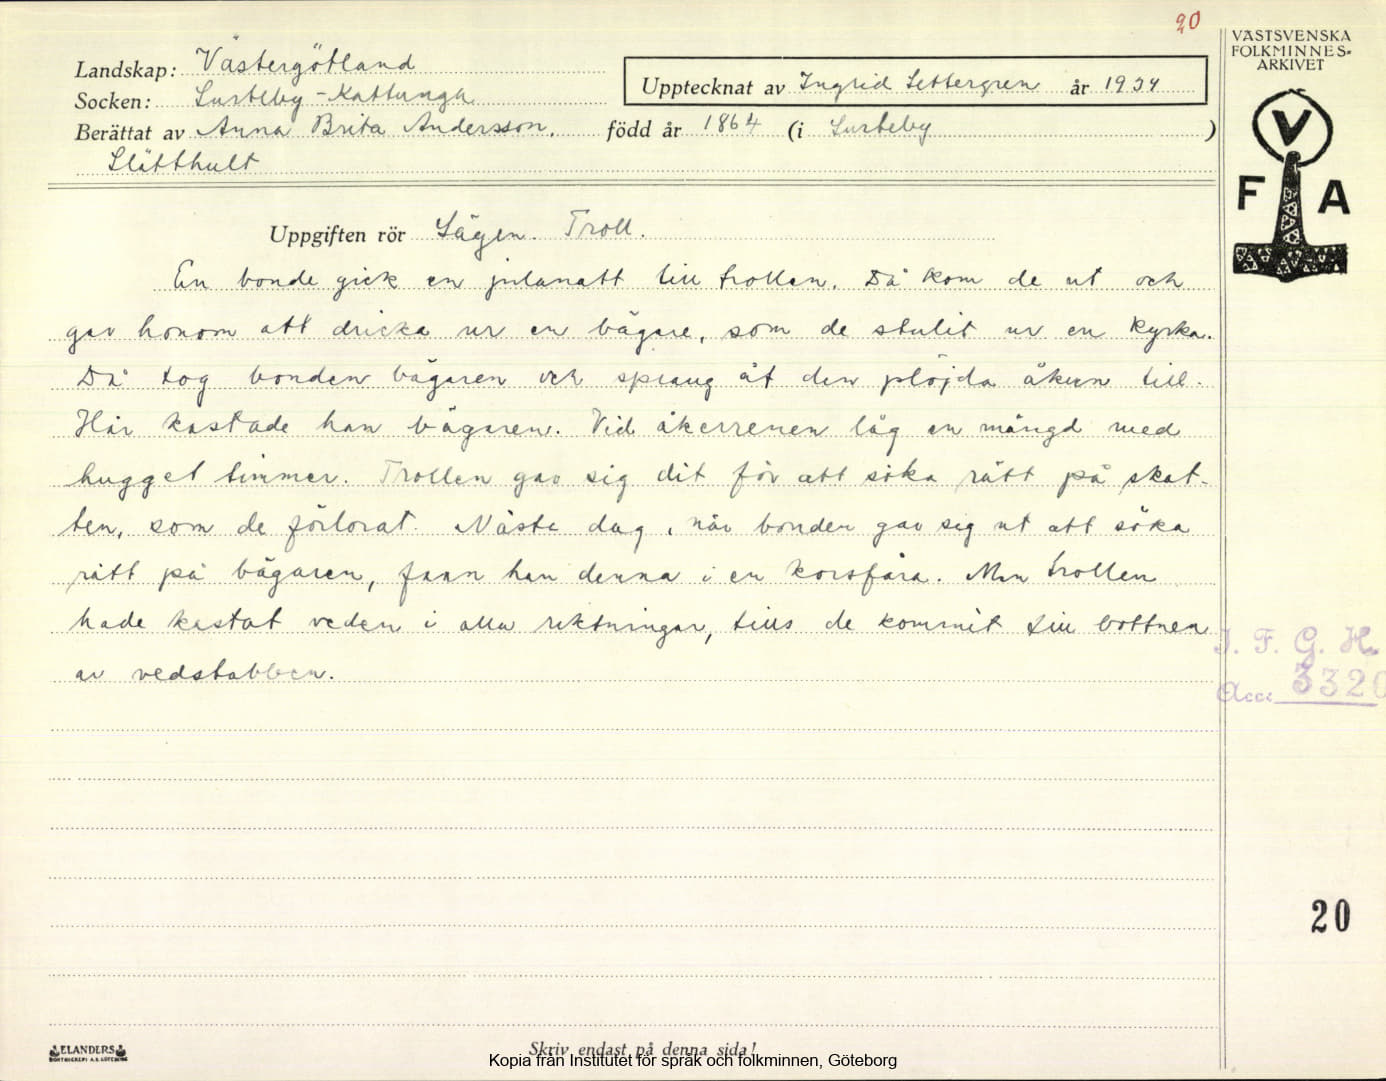 20
VÄSTSVENSKA
FOLKMINNES-
ARKIVET
Landskap: Västergötland
Upptecknat av Ingrid Settergren år 1934
Socken: Surteby-Kattunga
Berättat av Anna Brita Andersson. född år 1864 (i Surteby)
Slätthult
V
F A
Uppgiften rör Sägen. Troll.
En bonde gick en julanatt till trollen. Då kom de ut och
gav honom att dricka ur en bägare, som de stulit ur en kyrka.
Då tog bonden bägaren och sprang åt den plöjda åkern till.
Här kastade han bägaren. Vid åkerrenen låg en mängd med
hugget timmer. Trollen gav sig dit för att söka rätt på skat-
ten, som de förlorat. Nästa dag, när bonden gav sig ut att söka
rätt på bägaren, fann han denna i en korsfåra. Men trollen
hade kastat veden i alla riktningar, tills de kommit till bottnen
av vedstabben.
I. F. G. H.
Acc: 3320
20
ELANDERS
BOKTRYCKERI A.B. GÖTEBORG
Skriv endast på denna sida!
Kopia från Institutet för språk och folkminnen, Göteborg